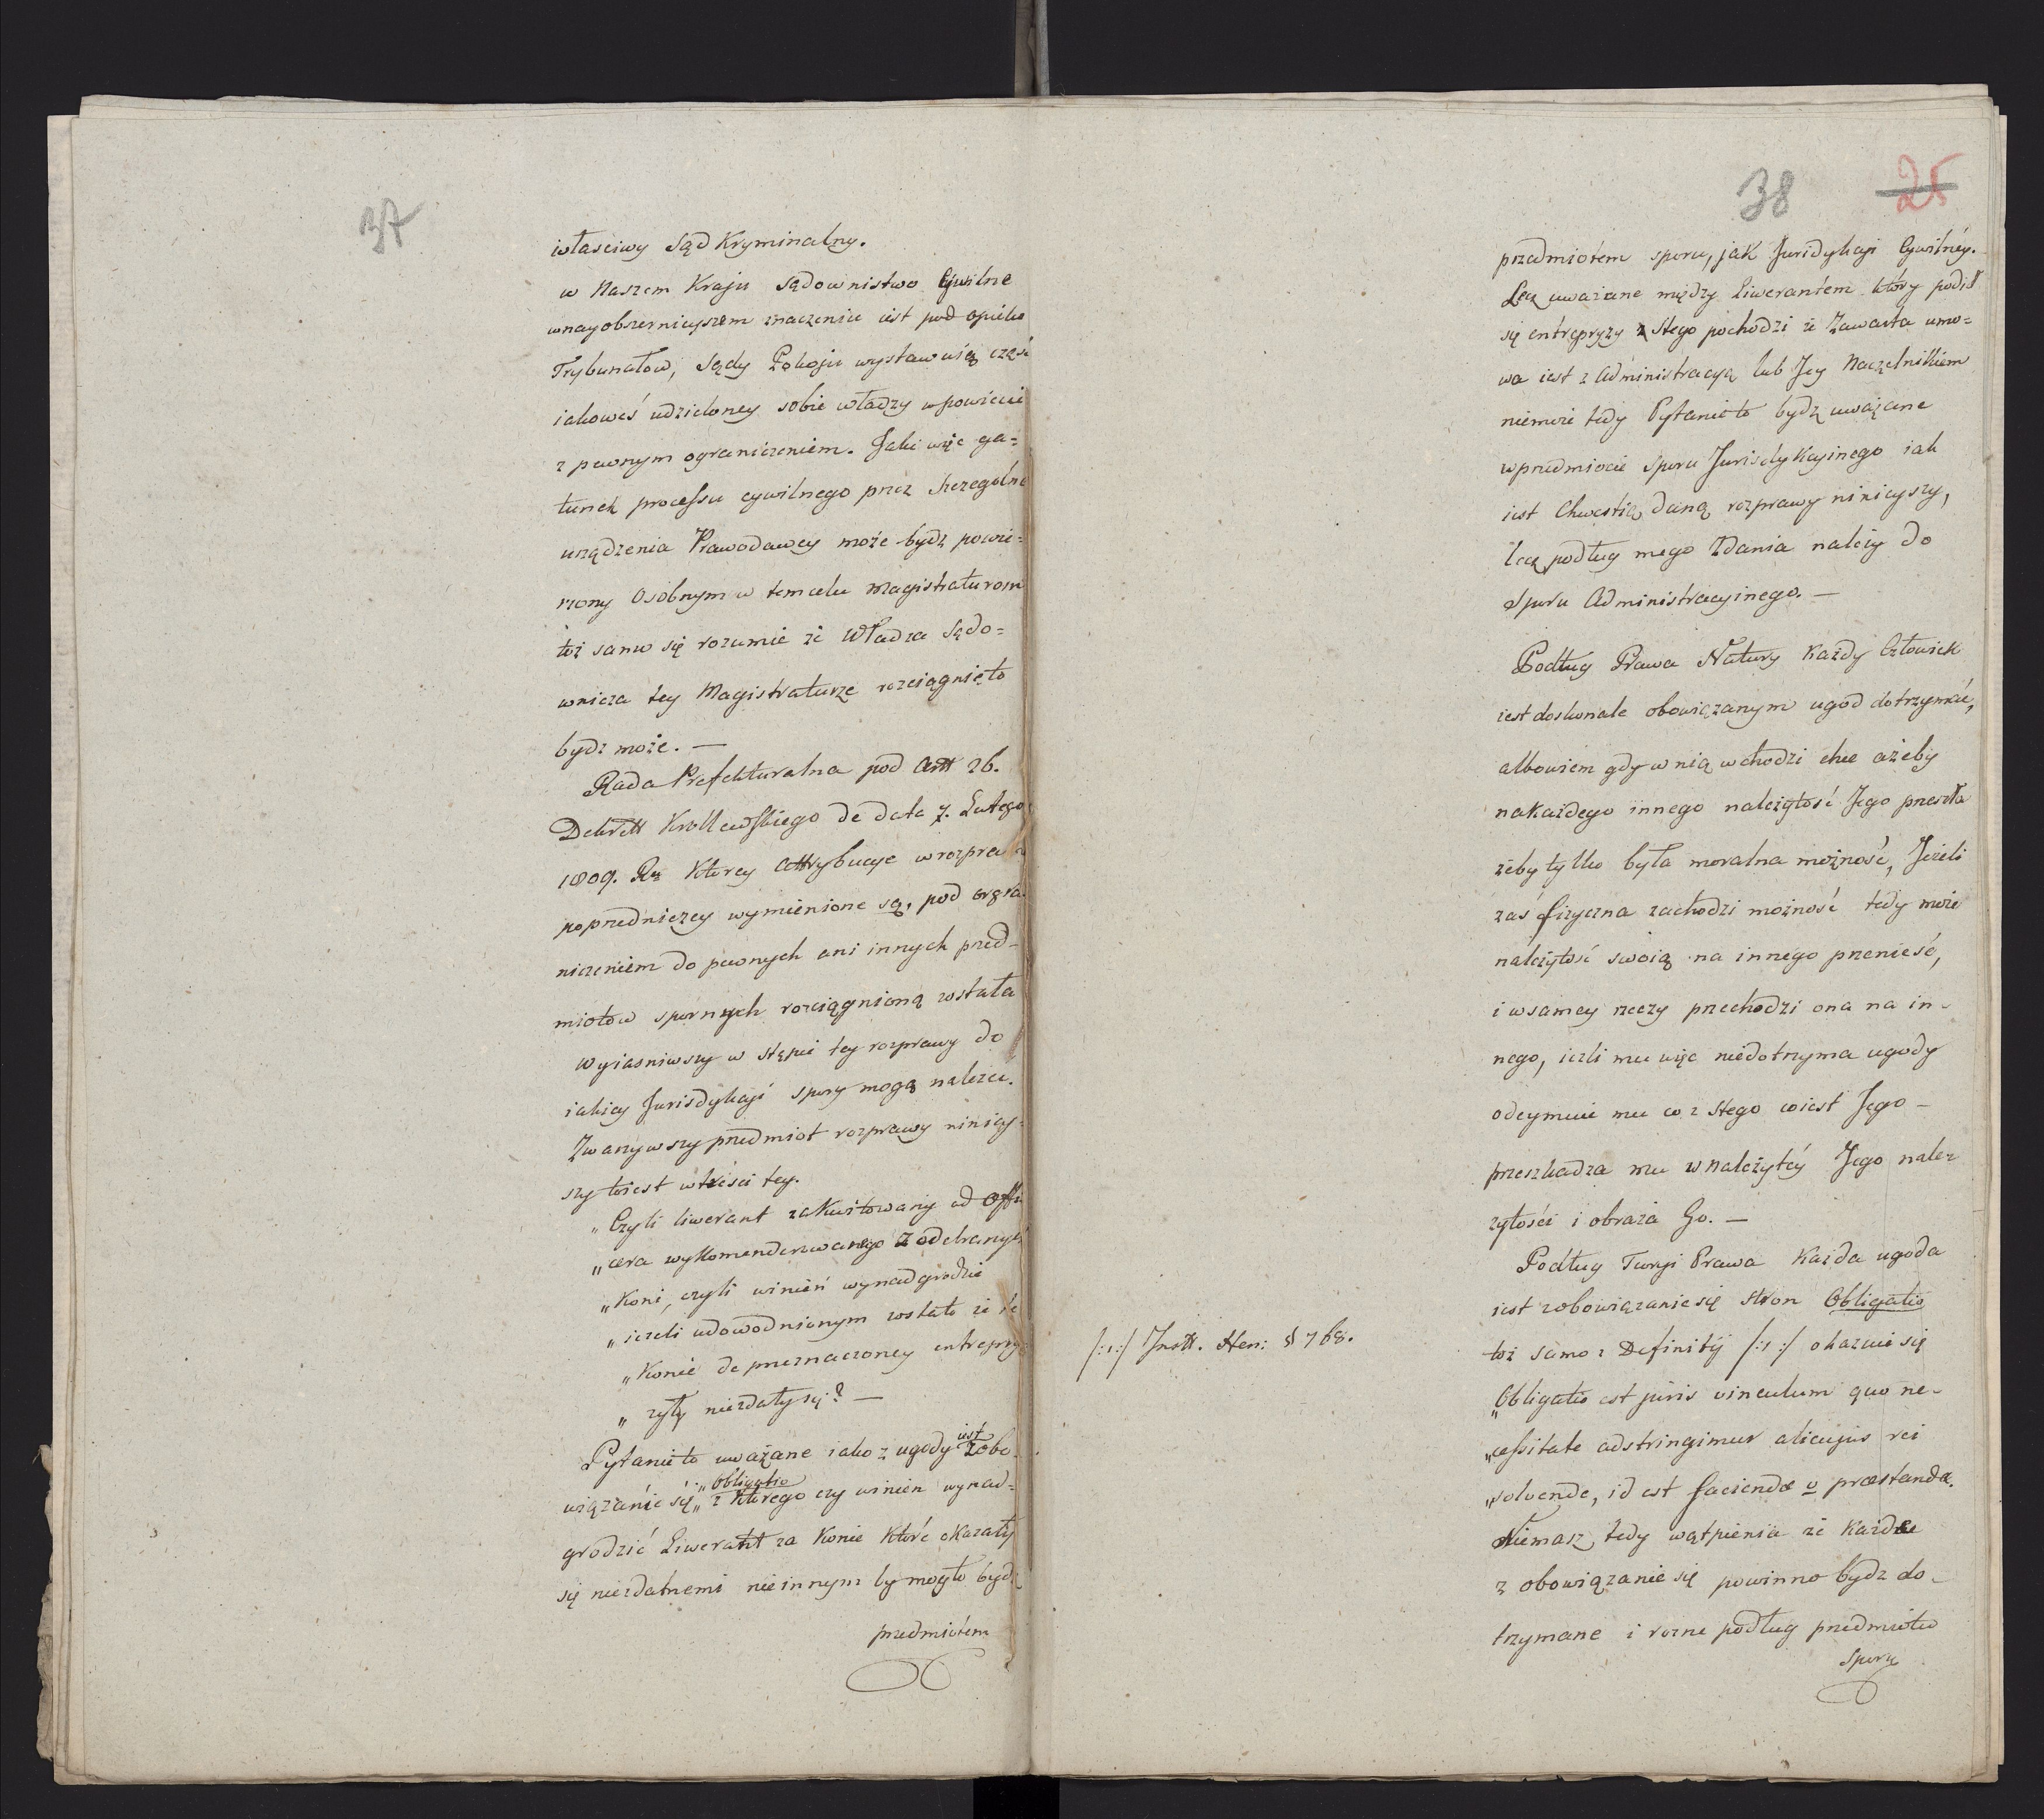 37
właściwy Sąd Kryminalny.
w Naszem Kraju Sądownistwo Cywilne
w nayobszernieyszem znaczeniu iest pod opieko
Trybunałow, Sądy Pokoju wystawuią część
iakoweś udzieloney sobie władzy w powiecie
z pewnym ograniczeniem. Jaki więc ga=
tunek processu cywilnego przez szczegolne
urządzenia Prawodawcy może bydz powie=
rzony Osobnym w tem celu Magistraturom
toż samo się rozumie że Władza Sądo=
wnicza tey Magistraturze rozciągnięto
bydz może. —
Rada Prefekturalna pod Artt 26.
Dekrett Krollewskiego de dato 7. Lutego
1809. Rᵘ Ktorey Attrybucye w rozprawie
poprzedniczey wymienione są, pod ogra-
niczeniem do pewnych ani innych przed-
miotow spornych rozciągnioną została
Wyiasniwszy w stępie tey rozprawy do
iakiey Jurisdykcyi spory mogą należec.
Zwazywszy przedmiot rozprawy niniey=
szy toiest w treści tey.
„Czyli liwerant zakwitowany od Offi
„cera wykomenderowanego z odebranych
„Koni, czyli winień wynadgrodzić
„ieżeli udowodnionym zostało że te
„Konie do przeznaczoney entrepry
„zyły niezdały są? —
Pytanie to uważane iako z ugody iest zobo
wiązanie się „Obligatio„ z ktorego czy winien wynad=
grodzić Liwerantt za Konie Które okazały
się niezdatnemi nie innym by mogło bydz
przedmiotem
38 25
przedmiotem sporu, jak Juridykcyi Cywilnéy.
Lecz uważane między Liwerantem który podiął
się entrepryzy z stego pochodzi że Zawarta umo=
wa iest z Administracyą lub Jey Naczelnikiem
niemoże tedy Pytanie to bydz uważane
w przedmiocie sporu Jurisdykcyinego iak
iest Chwestią daną rozprawy ninieyszy,
lecz podług mego Zdania należy do
Sporu Administracyinego. —
Podług Prawa Natury każdy Człowiek
iest doskonale obowiązanym ugod dotrzymać,
albowiem gdy w nią wchodzi chce ażeby
nakażdego innego należytość Jego przeszła
żeby tylko była moralna możność, Jeżeli
zaś fizyczna zachodzi możność tedy może
należytość swoią na innego przenieść,
i w samey rzeczy przechodzi ona na in-
nego, ieżli mu więc niedotrzyma ugody
odeymuie mu co z stego coiest Jego –
przeszkadza mu w należytéy Jego nale-
żytości i obraża Go. —
Podług Teoryi Prawa Każda ugoda
iest zobowiązanie się stron Obligatio
toż samo z Definitii /:1:/ okazuie się
/:1:/ Instt. Hen: § 768.
„Obligatio est juris vinculum quo ne-
„cessitate adstringimur alicujus rei
„solvendæ, id est faciendæ v præstandæ.
Niemasz tedy wątpienia że Każde
z obowiązanie się powinno bydz do-
trzymane i rozne podług przedmiotu
Sporu